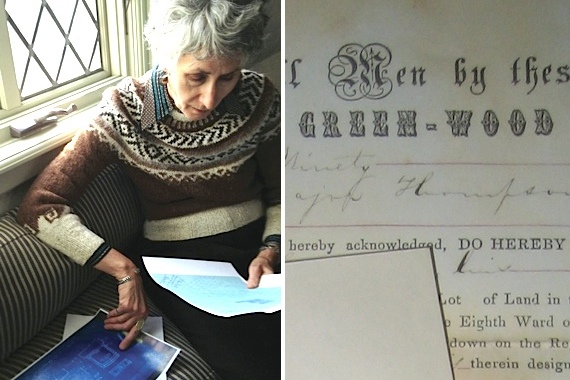 Men by thes
GREEN-WOOD
Ninety
Thompson
hereby acknowledged, DO HEREBY
Lot of Land in
Eighth Ward o
down on the Re
therein design